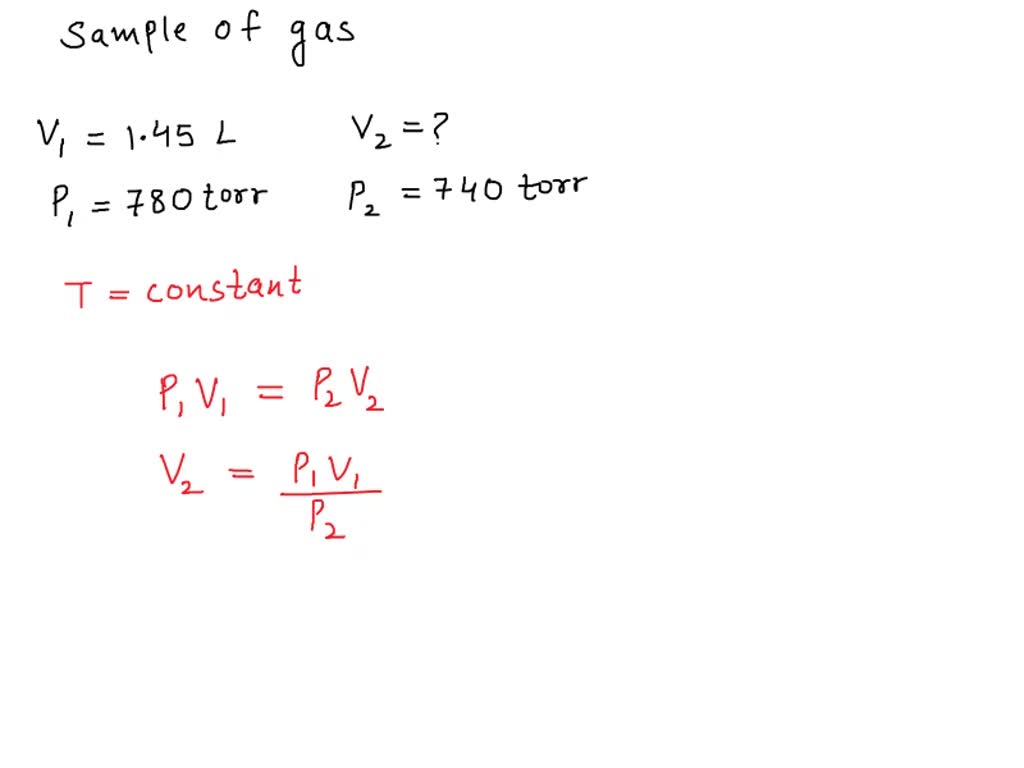 Sample of gas
V₁ = 1.45 L V₂ = ?
P₁ = 780 torr P₂ = 740 torr
T = constant
P₁ V₁ = P₂ V₂
V₂ = P₁ V₁ / P₂